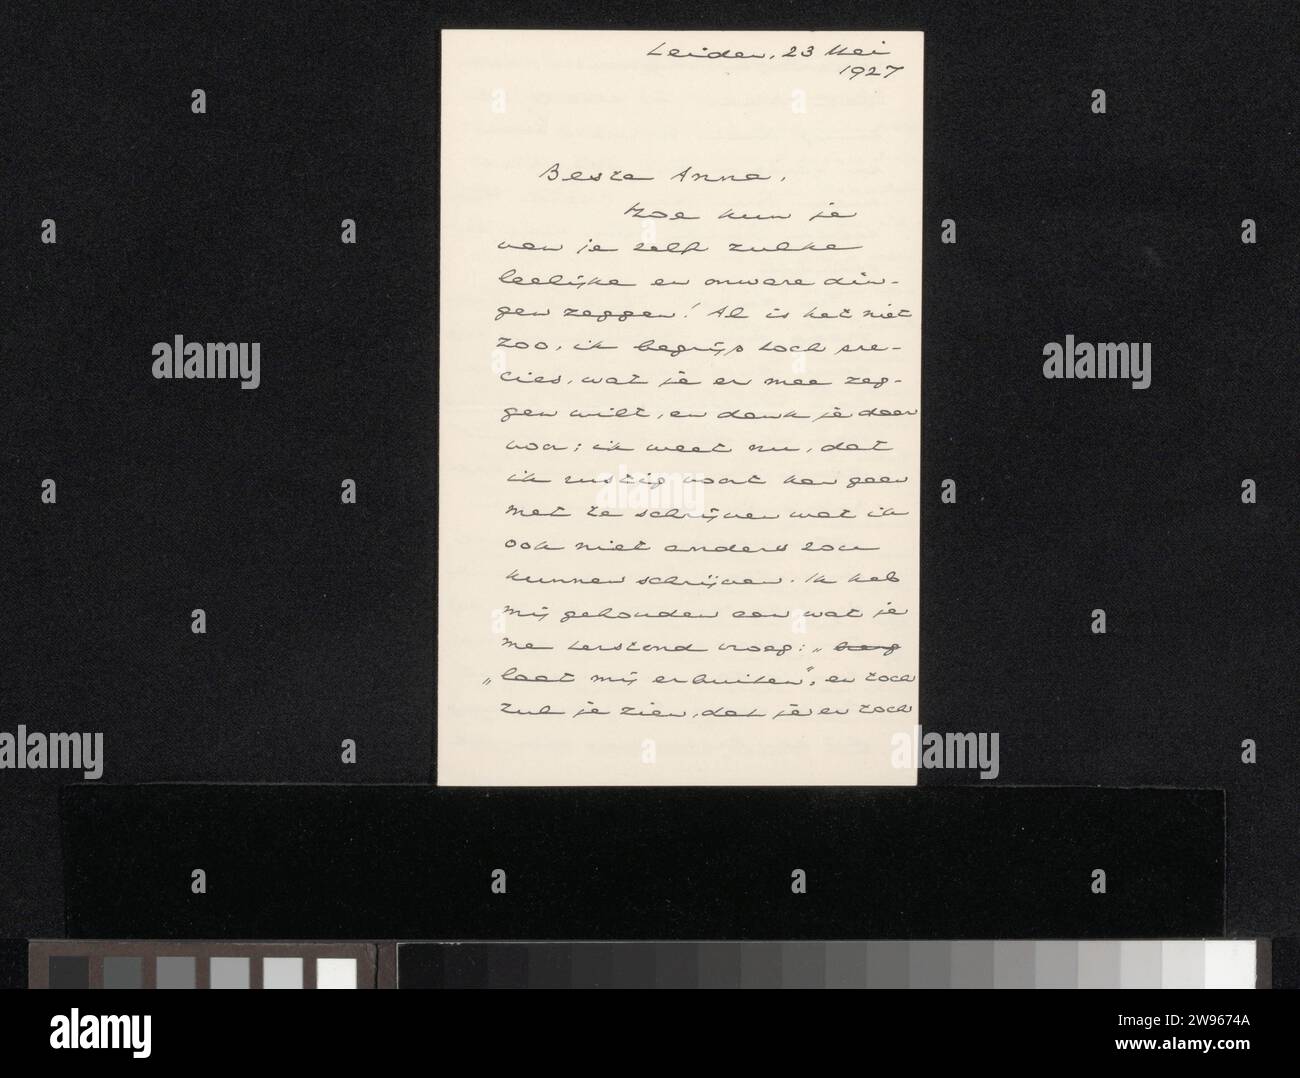 Leiden, 23 Mei
1927
Beste Anna,
Hoe kun je
van je zelf zulke
leelijke en onware din-
gen zeggen! Al is het niet
zoo, ik begrijp toch pre-
cies, wat je er mee zeg-
gen wilt, en dank je daar
voor; ik weet nu, dat
ik rustig voort kan gaan
met te schrijven wat ik
ook niet anders zou
kunnen schrijven. Ik heb
mij gehouden aan wat je
me terstond vroeg: „
„laat mij erbuiten", en toch
zul je zien, dat je er toch
alamy
alamy
Image ID: 2W9674A
www.alamy.com